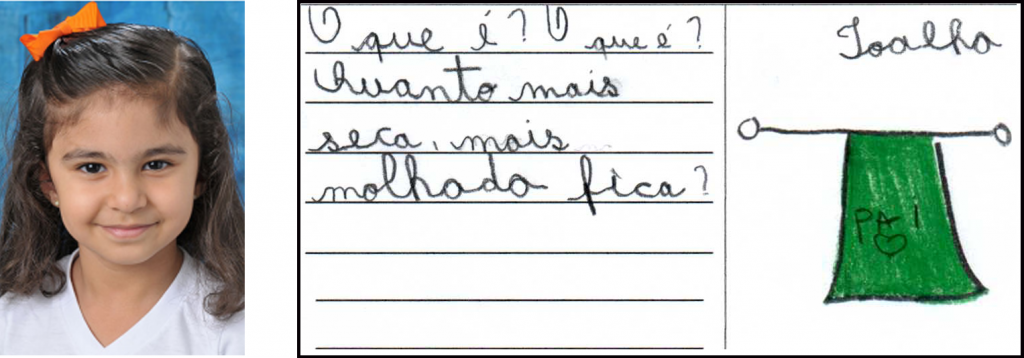 O que é? O que é?
Quanto mais
seca, mais
molhada fica?
Toalha
PAI